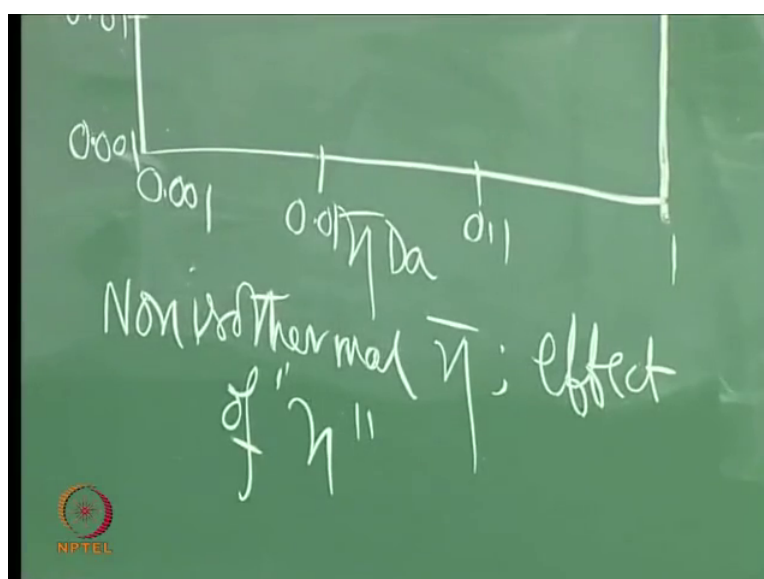 0.01
0.001
0.001 0.01 0.1 1
η̄ Da
Non isothermal η̄ ; effect
of "η"
NPTEL